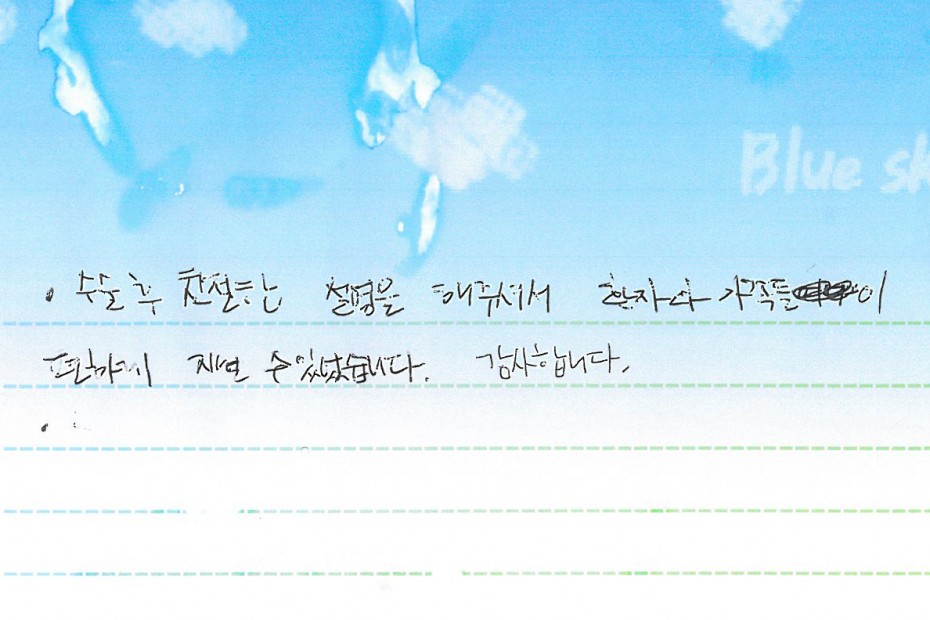 Blue sk
· 수술 후 친절한 설명을 해주셔서 환자와 가족들이
편하게 지낼 수 있었습니다. 감사합니다.
·